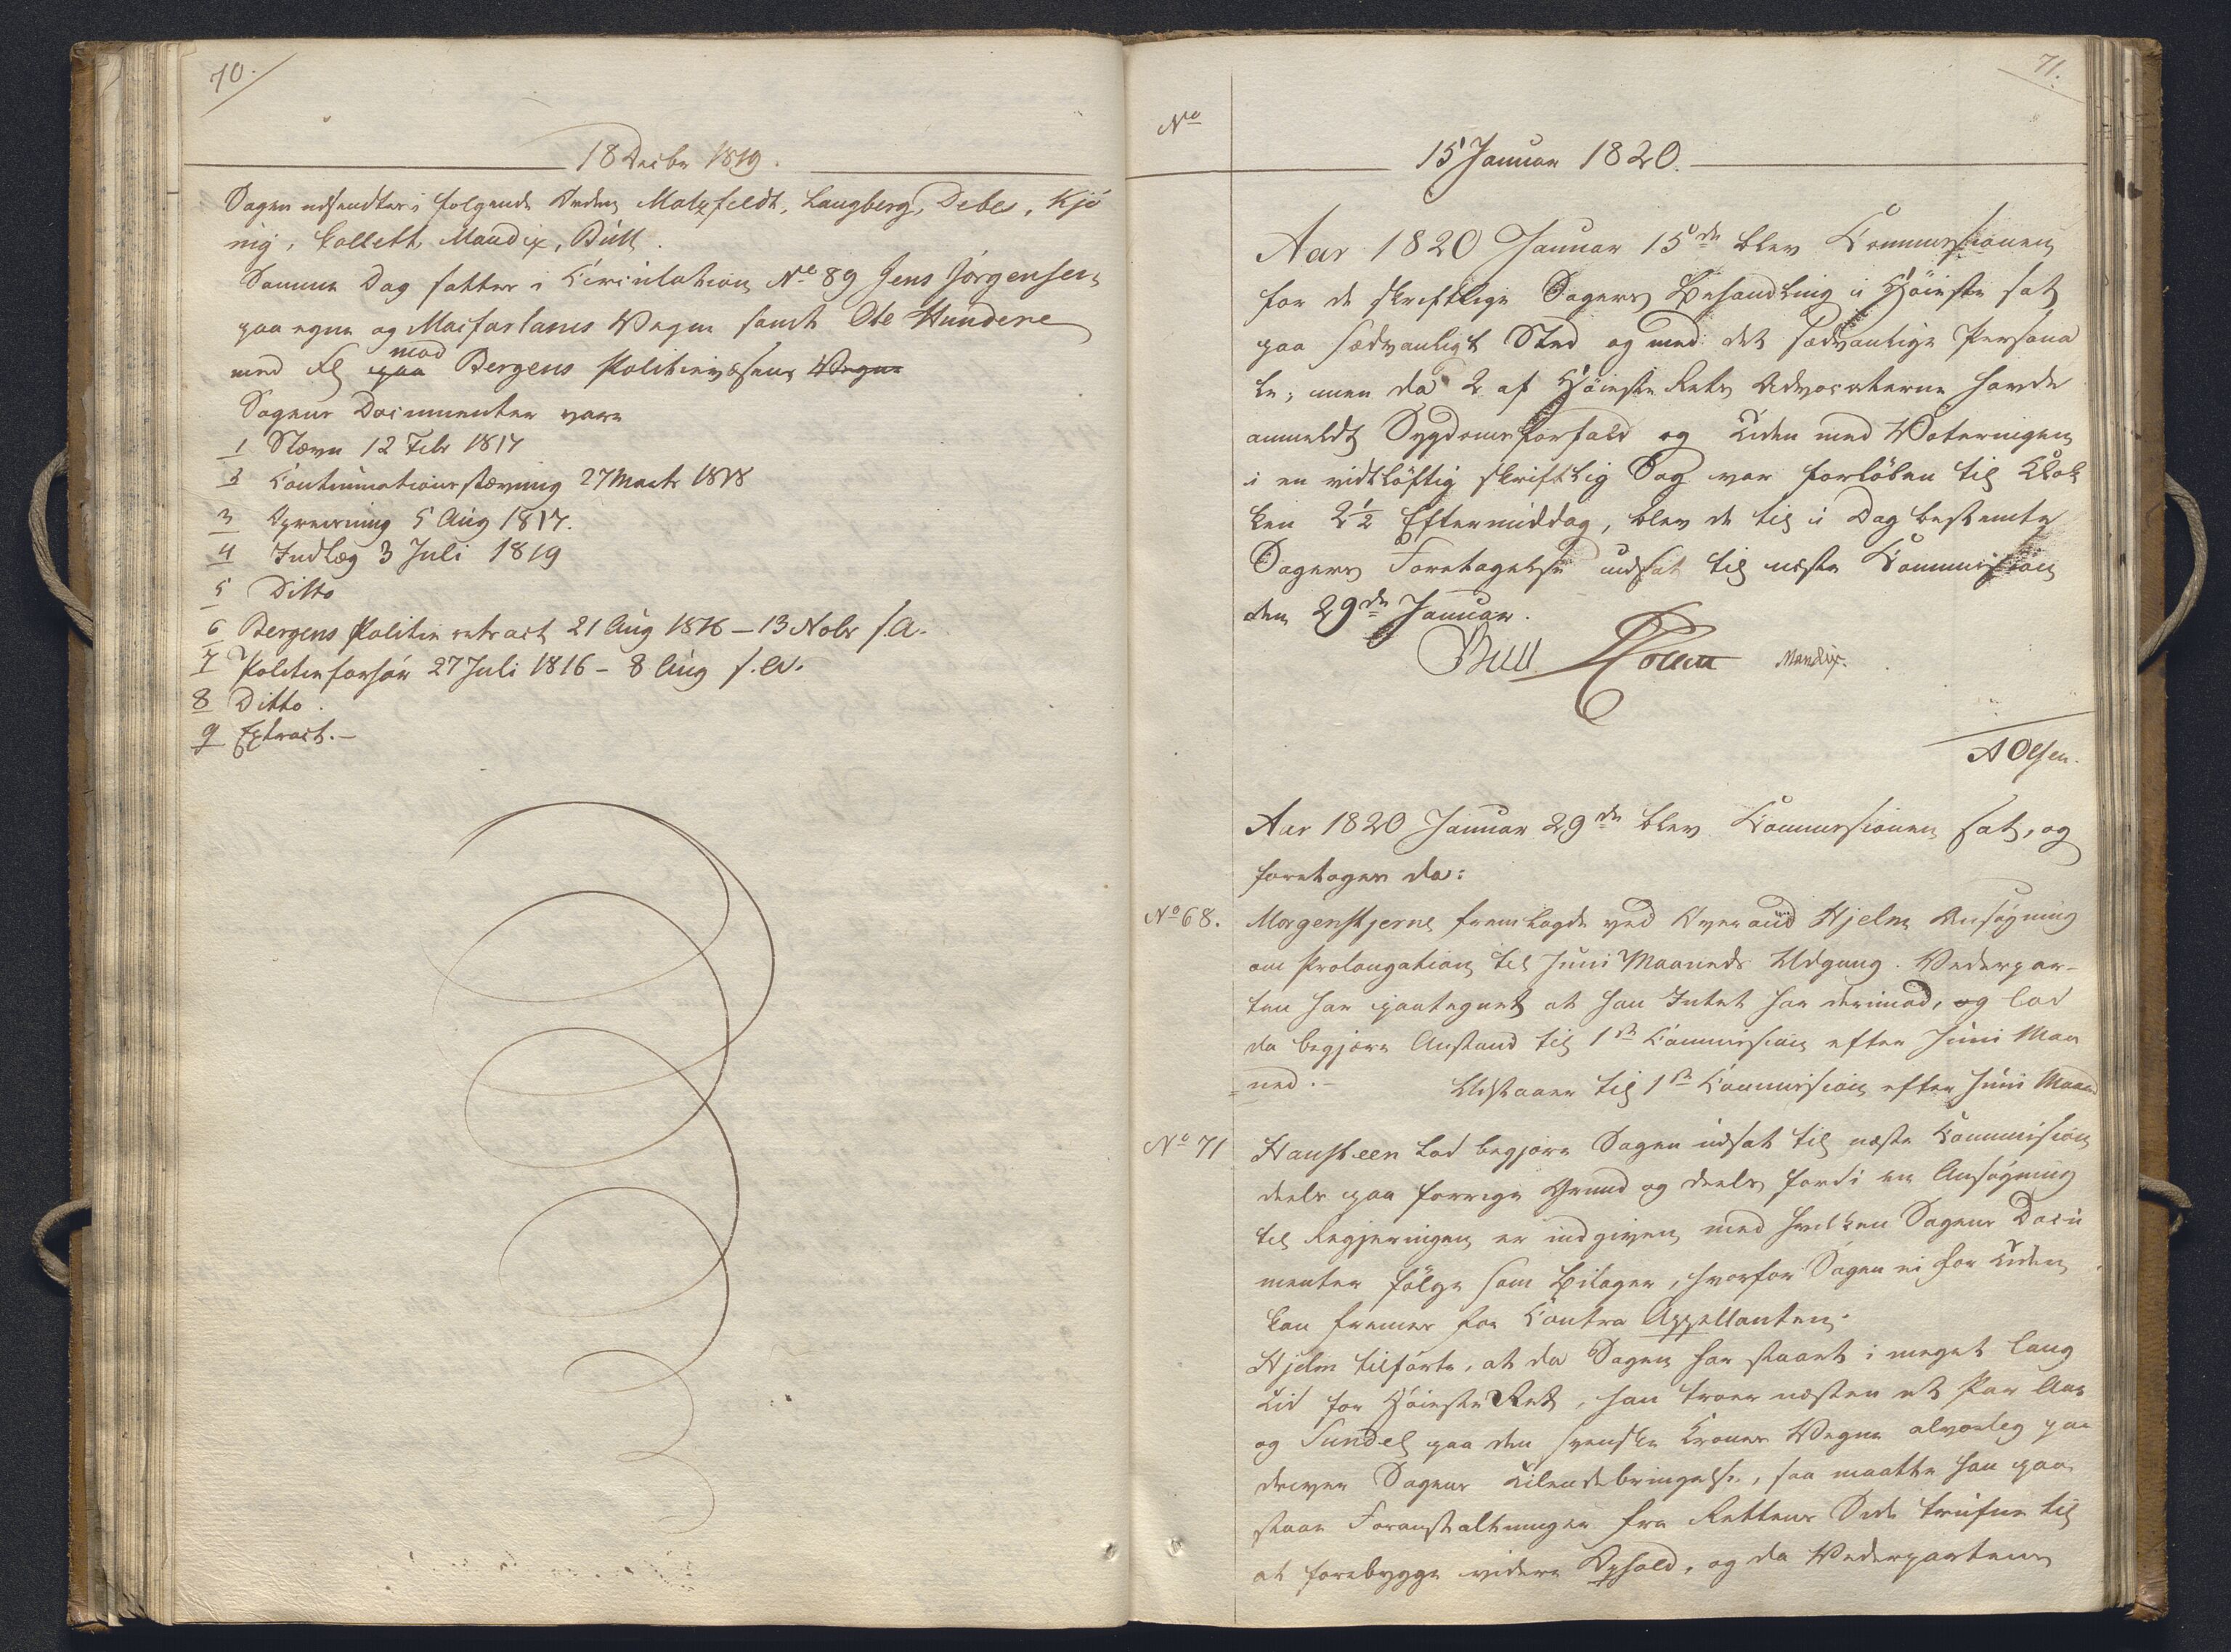 70.
18 Decbr 1819.
Sagen udsendtes i følgende Orden Motzfeldt, Langberg, Debes, Kjø
nig, Collett, Mandix, Bull.
Samme Dag sattes i Circulation No 89 Jens Jørgensen
paa egne og Macfarlanes Vegne samt Ole Hundere
med Fl mod paa Bergens Politievæsens Vegne
Sagens Documenter vare
1 Stævn 12 Febr 1817
2 Continuationsstævning 27 Marts 1818
3 Opreisning 5 Aug 1817.
4 Indlæg 3 Juli 1819
5 Ditto
6 Bergens Politie 21 Aug 1816 – 13 Nobr s.A.
7 Politieforhør 27 Juli 1816 – 8 Aug s.A.
8 Ditto.
9 Extract. –
71.
No
15 Januar 1820.
Aar 1820 Januar 15de blev Commissionen
for de skriftlige Sagers Behandling i Høieste sat
paa sædvanligt Sted og med det sædvanlige Persona
le; men da 2 af Høieste Rets Advocaterne havde
anmeldt Sygdomsforfald og Tiden med Voteringen
i en vidtløftig skriftlig Sag var forløben til Klok
ken 2½ Eftermiddag, blev de til i Dag bestemte
Sagers Foretagelse udsat til næste Commission
den 29de Januar.
Bull Mandix.
A Olsen.
Aar 1820 Januar 29de blev Commissionen sat, og
foretoges da:
No 68. Morgenstjerne fremlagde ved Hjelm Ansøgning
om Prolongation til Juni Maaneds Udgang. Vederpar-
ten har paategnet at han Intet har derimod, og lod
da begjære Anstand til 1ste Commission efter Juni Maa
ned. – Udstaaer til 1ste Commission efter Juni Maaned
No 71 Hansteen lod begjære Sagen udsat til næste Commission
deels paa forrige Grund og deels fordi en Ansøgning
til Regjeringen er indgiven, med hvilken Sagens Docu
menter følge som Bilager, hvorfor Sagen ei for Tiden
kan fremmes for Contra Appellanten.
Hjelm tilførte, at da Sagen har staaet i meget lang
Tid for Høieste Ret, han troer næsten et Par Aar
og Sundel paa den svenske Krones Vegne alvorlig paa
driver Sagens Tilendebringelse, saa maatte han paa
staae Foranstaltninger fra Rettens Side trufne til
at forebygge videre Ophold, og da Vederpartens